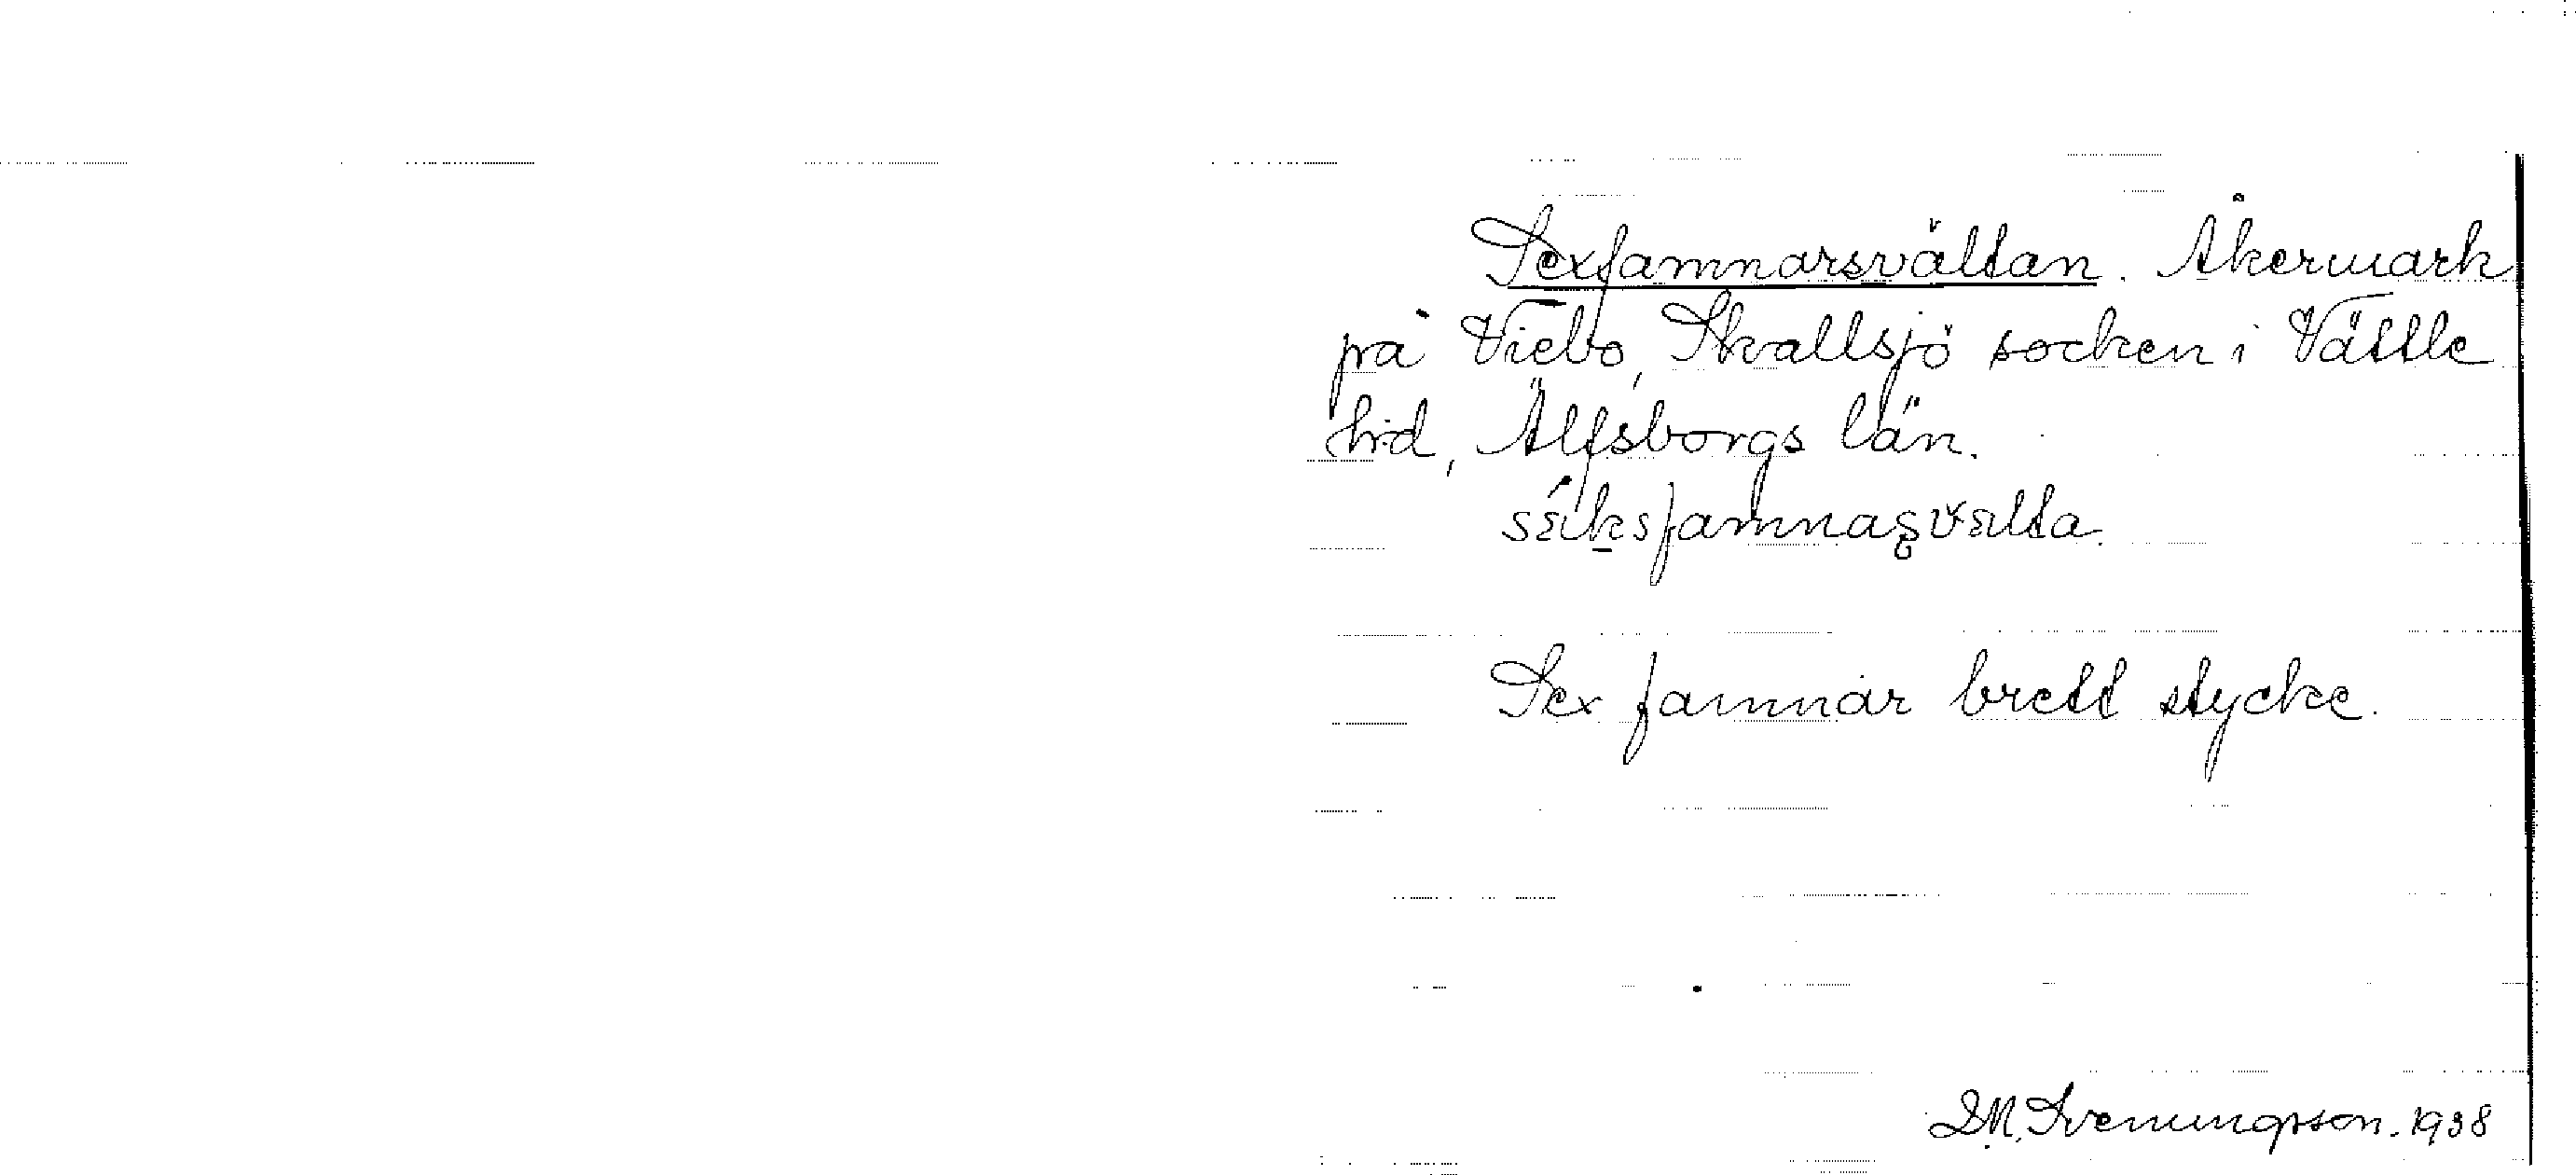 Sexfamnarsvältan. Åkermark
på Viebo, Skallsjö socken i Vättle
hd, Älfsborgs län.
Sex famnar brett stycke.
D.M. Svenungsson. 1938